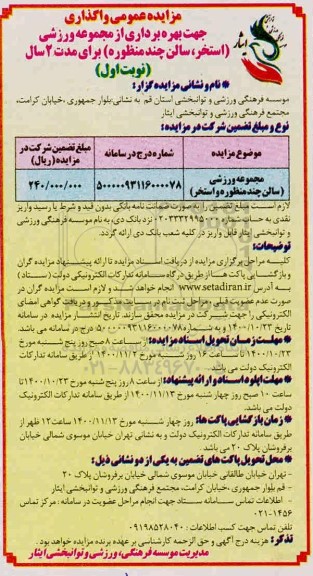 مزایده عمومی واگذاری
جهت بهره برداری از مجموعه ورزشی
(استخر، سالن چند منظوره) برای مدت ۲ سال
(نوبت اول)
ایثار
* نام و نشانی مزایده گزار:
موسسه فرهنگی ورزشی و توانبخشی استان قم به نشانی: بلوار جمهوری، خیابان کرامت،
مجتمع فرهنگی ورزشی و توانبخشی ایثار
نوع و مبلغ تضمین شرکت در مزایده:
موضوع مزایده
شماره درج در سامانه
مبلغ تضمین شرکت در
مزایده (ریال)
مجموعه ورزشی
(سالن چند منظوره و استخر)
۵۰۰۰۰۰۹۳۱۱۶۰۰۰۰۷۸
۲۴۰/۰۰۰/۰۰۰
لازم است مبلغ تضمین را به صورت ضمانت نامه بانکی بدون قید و شرط یا رسید واریز
نقدی به حساب شماره نزد بانک دی، به نام موسسه فرهنگی ورزشی
و توانبخشی ایثار قابل واریز در کلیه شعب بانک دی ارائه گردد.
توضیحات:
کلیه مراحل برگزاری مزایده از دریافت اسناد مزایده تا ارائه پیشنهاد مزایده گران
و بازگشایی پاکت ها از طریق درگاه سامانه تدارکات الکترونیکی دولت (ستاد)
به آدرس www.setadiran.ir انجام خواهد شد و لازم است مزایده گران در
صورت عدم عضویت قبلی مراحل ثبت نام در سایت مذکور و دریافت گواهی امضای
الکترونیکی را جهت شرکت در مزایده محقق سازند. تاریخ انتشار مزایده در سامانه
تاریخ ۱۴۰۰/۱۰/۲۳ و به شماره ۵۰۰۰۰۰۹۳۱۱۶۰۰۰۰۷۸ درج در سامانه می باشد.
* مهلت زمان تحویل اسناد مزایده: از ساعت ۸ صبح روز پنج شنبه مورخ
۱۴۰۰/۱۰/۲۳ تا ساعت ۱۶ روز شنبه مورخ ۱۴۰۰/۱۱/۲ از طریق سامانه تدارکات
الکترونیک دولت می باشد.
* مهلت اپلود اسناد و ارائه پیشنهاد: از ساعت ۸ روز پنج شنبه مورخ ۱۴۰۰/۱۰/۲۳ تا
ساعت ۱۰ صبح روز چهار شنبه مورخ ۱۴۰۰/۱۱/۱۳ از طریق سامانه تدارکات الکترونیک
دولت می باشد.
* زمان بازگشایی پاکت ها: روز چهار شنبه مورخ ۱۴۰۰/۱۱/۱۳ ساعت ۱۲ ظهر از
طریق سامانه تدارکات الکترونیک دولت و به نشانی تهران خیابان موسوی شمالی خیابان
برفروشان پلاک ۲۰ می باشد.
* محل تحویل پاکت های تضمین به یکی از دو نشانی ذیل:
- تهران خیابان طالقانی خیابان موسوی شمالی خیابان برفروشان پلاک ۲۰
- قم بلوار جمهوری، خیابان کرامت، مجتمع فرهنگی ورزشی و توانبخشی ایثار
- اطلاعات تماس سامانه ستاد جهت انجام مراحل عضویت در سامانه: مرکز تماس
۰۲۱-۱۴۵۶
تلفن تماس جهت کسب اطلاعات: ۰۹۱۹۸۵۲۸۰۴۰
تذکر: هزینه درج آگهی و حق الزحمه کارشناسی بر عهده برنده مزایده خواهد بود.
مدیریت موسسه فرهنگی، ورزشی و توانبخشی ایثار